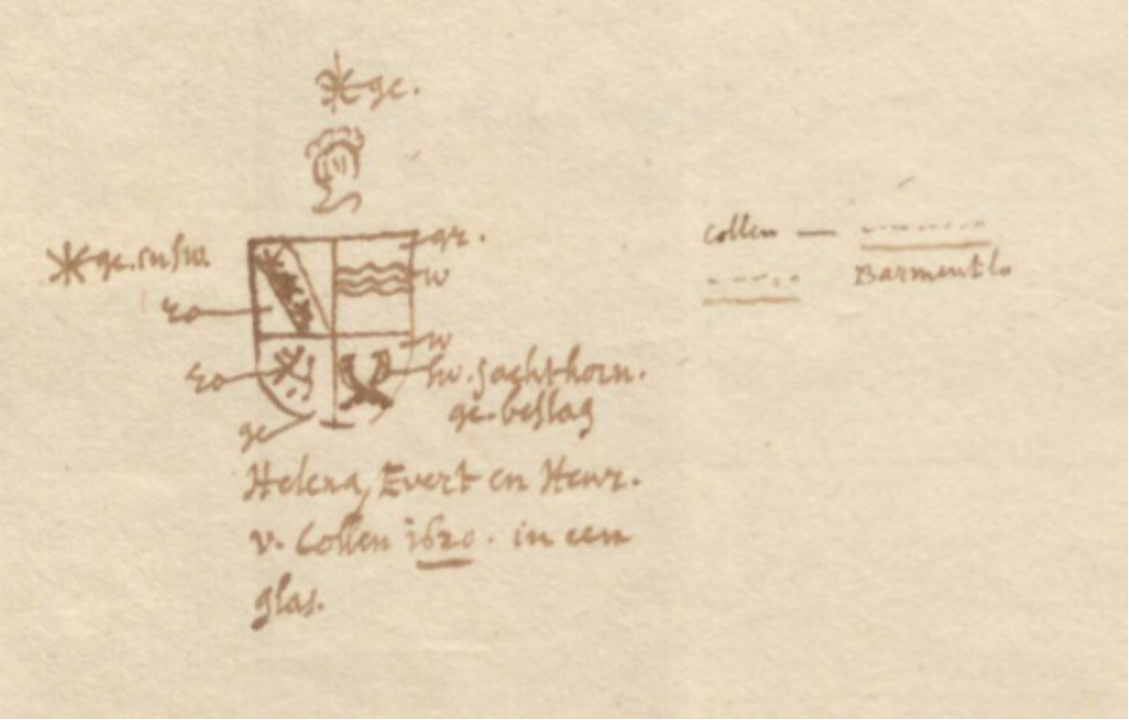 ge.
ge. in sw.
gr.
w
ro
w
ro
sw. jachthorn.
ge. beslag
ge
Helena, Evert en Henr.
v. Collen 1620. in een
glas.
Collen —
Barmentlo